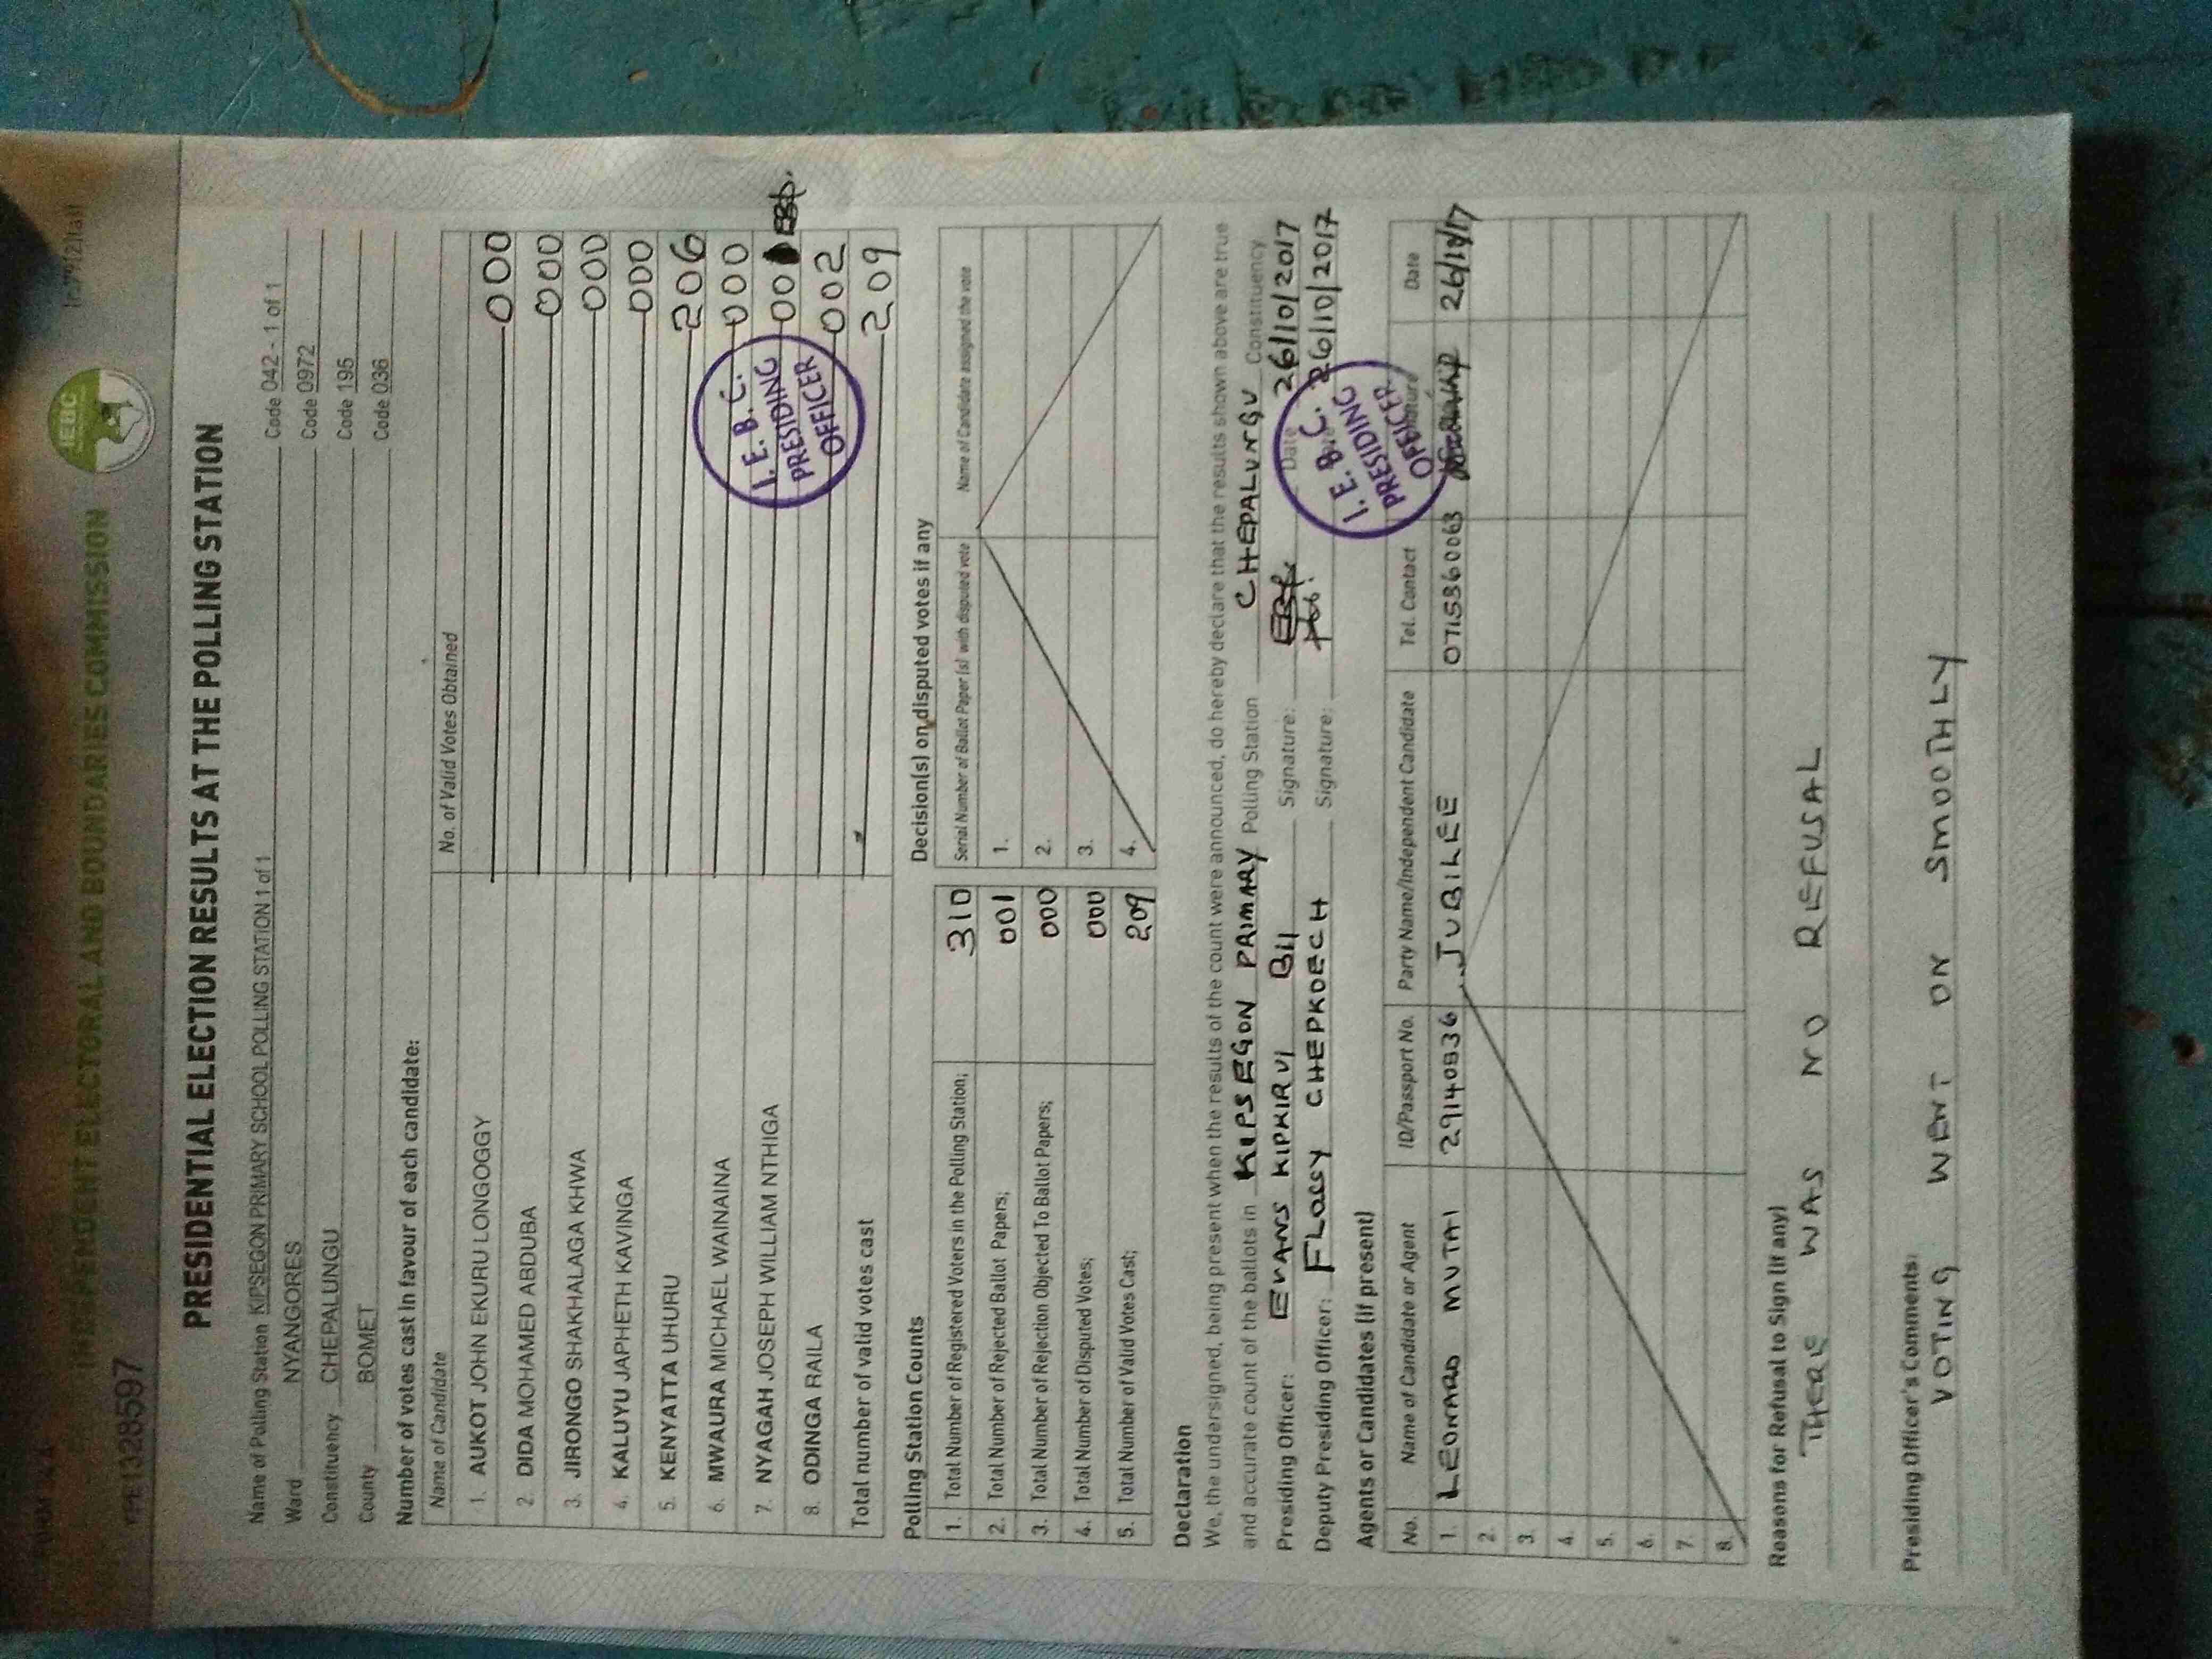 FORM 34A
INDEPENDENT ELECTORAL AND BOUNDARIES COMMISSION
IEBC
PRESIDENTIAL ELECTION RESULTS AT THE POLLING STATION
Name of Polling Station KIPSEGON PRIMARY SCHOOL POLLING STATION 1 of 1 Code 042 - 1 of 1
Ward NYANGORES Code 0972
Constituency CHEPALUNGU Code 195
County BOMET Code 036
Number of votes cast in favour of each candidate:
Name of Candidate No. of Valid Votes Obtained
1. AUKOT JOHN EKURU LONGOGGY 000
2. DIDA MOHAMED ABDUBA 000
3. JIRONGO SHAKHALAGA KHWA 000
4. KALUYU JAPHETH KAVINGA 000
5. KENYATTA UHURU 206
6. MWAURA MICHAEL WAINAINA 000
7. NYAGAH JOSEPH WILLIAM NTHIGA 001
8. ODINGA RAILA 002
Total number of valid votes cast 209
I. E. B. C.
PRESIDING
OFFICER
Polling Station Counts
1. Total Number of Registered Voters in the Polling Station; 310
2. Total Number of Rejected Ballot Papers; 001
3. Total Number of Rejection Objected To Ballot Papers; 000
4. Total Number of Disputed Votes; 000
5. Total Number of Valid Votes Cast; 209
Decision(s) on disputed votes if any
Serial Number of Ballot Paper (s) with disputed vote Name of Candidate assigned the vote
1.
2.
3.
4.
Declaration
We, the undersigned, being present when the results of the count were announced, do hereby declare that the results shown above are true
and accurate count of the ballots in KIPSEGON PRIMARY Polling Station CHEPALUNGU Constituency
Presiding Officer: EVANS KIPKIRUI BII Signature: Date 26/10/2017
Deputy Presiding Officer: FLACSY CHEPKOECH Signature: 26/10/2017
I. E. B. C.
PRESIDING
OFFICER
Agents or Candidates (if present)
No. Name of Candidate or Agent ID/Passport No. Party Name/Independent Candidate Tel. Contact Signature Date
1. LEONARD MUTAI 29140836 JUBILEE 0715860063 26/10/17
2.
3.
4.
5.
6.
7.
8.
Reasons for Refusal to Sign (if any)
THERE WAS NO REFUSAL
Presiding Officer's Comments:
VOTING WENT ON SMOOTHLY